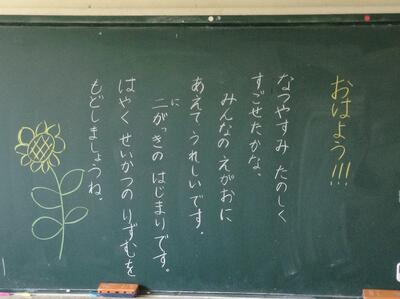 おはよう!!!
なつやすみ たのしく
すごせたかな。
みんなの えがおに
あえて うれしいです。
二がっきの はじまりです。
に
はやく せいかつの りずむを
もどしましょうね。